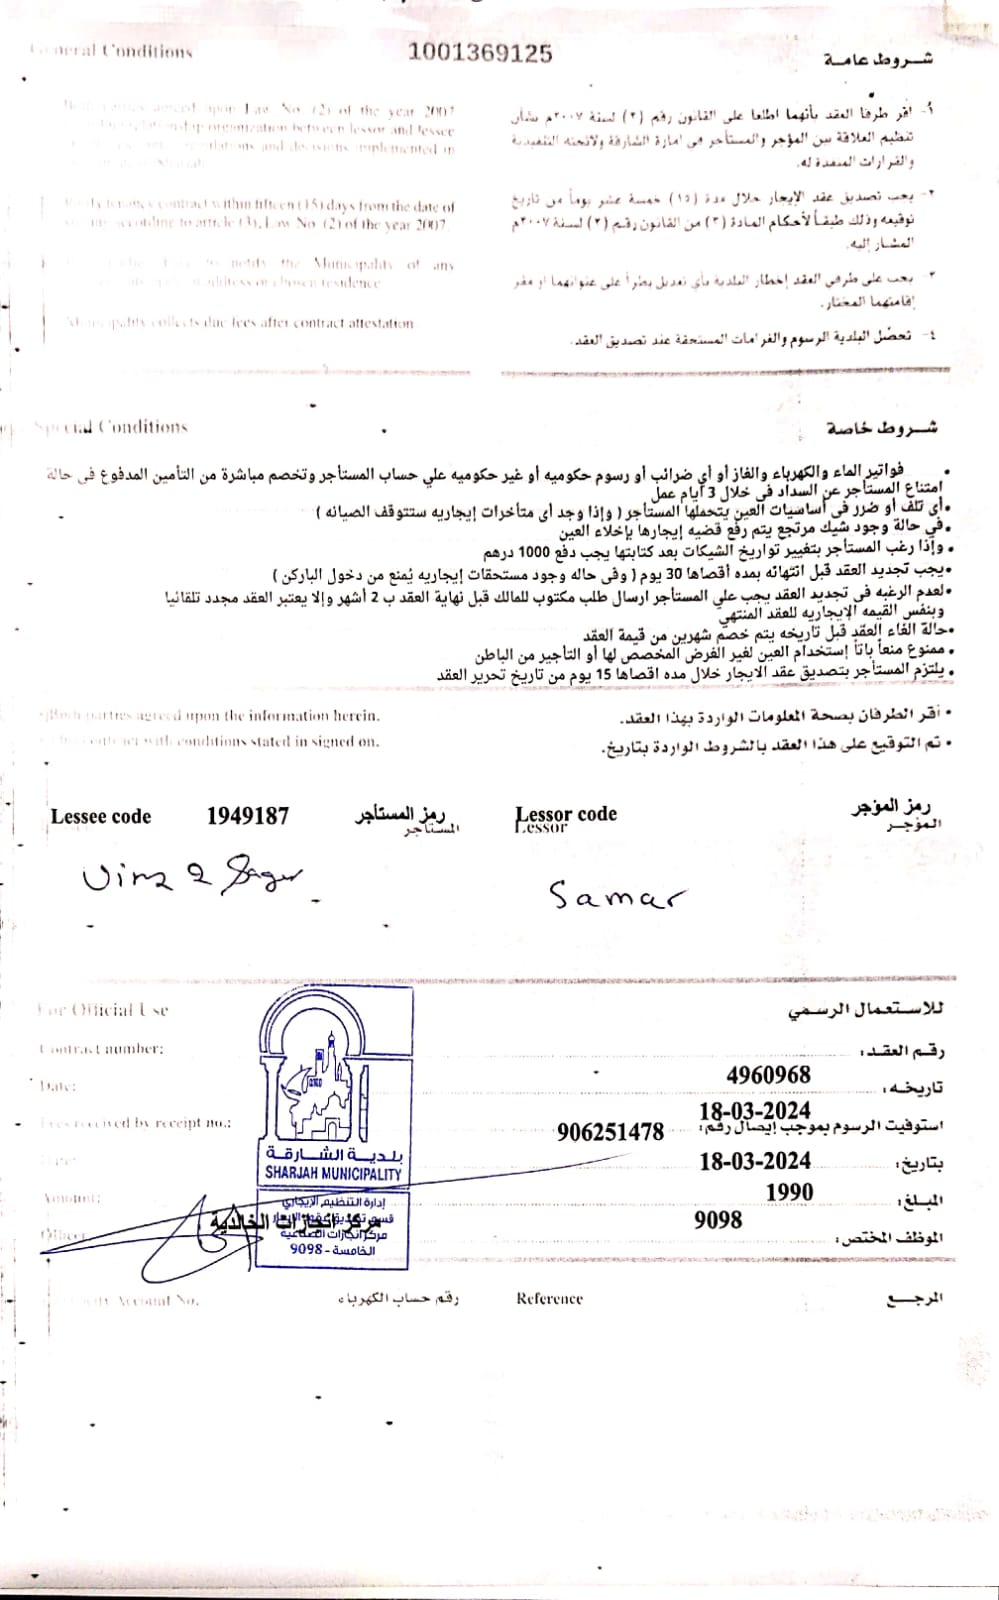 General Conditions
1001369125
شروط عامة
Both parties agreed upon Law No. (2) of the year 2007
organization between lessor and lessee
and decisions implemented in
١- أقر طرفا العقد بأنهما اطلعا على القانون رقم (٢) لسنة ٢٠٠٧م بشأن
تنظيم العلاقة بين المؤجر والمستأجر في إمارة الشارقة ولائحته التنفيذية
والقرارات المنفذة له.
contract within fifteen (15) days from the date of
according to article (3), Law No. (2) of the year 2007.
٢- يجب تصديق عقد الإيجار خلال مدة (١٥) خمسة عشر يوماً من تاريخ
توقيعه وذلك طبقاً لأحكام المادة (٣) من القانون رقم (٢) لسنة ٢٠٠٧م
المشار إليه.
to notify the Municipality of any
address or chosen residence
٣- يجب على طرفي العقد إخطار البلدية بأي تعديل يطرأ على عنوانهما او مقر
إقامتهما المختار.
Municipality collects due fees after contract attestation
٤- تحصّل البلدية الرسوم والغرامات المستحقة عند تصديق العقد.
Special Conditions
شروط خاصة
• فواتير الماء والكهرباء والغاز أو أي ضرائب أو رسوم حكوميه أو غير حكوميه علي حساب المستأجر وتخصم مباشرة من التأمين المدفوع في حالة
امتناع المستأجر عن السداد في خلال 3 أيام عمل
•أى تلف أو ضرر فى أساسيات العين يتحملها المستأجر ( وإذا وجد أى متأخرات إيجاريه ستتوقف الصيانه )
•في حالة وجود شيك مرتجع يتم رفع قضيه إيجارها بإخلاء العين
• وإذا رغب المستأجر بتغيير تواريخ الشيكات بعد كتابتها يجب دفع 1000 درهم
•يجب تجديد العقد قبل انتهائه بمده أقصاها 30 يوم ( وفى حاله وجود مستحقات إيجاريه يُمنع من دخول الباركن )
•لعدم الرغبه فى تجديد العقد يجب علي المستأجر ارسال طلب مكتوب للمالك قبل نهاية العقد ب 2 أشهر وإلا يعتبر العقد مجدد تلقائيا
وبنفس القيمه الإيجاريه للعقد المنتهي
•حالة الغاء العقد قبل تاريخه يتم خصم شهرين من قيمة العقد
• ممنوع منعاً باتاً إستخدام العين لغير الغرض المخصص لها أو التأجير من الباطن
• يلتزم المستأجر بتصديق عقد الايجار خلال مده اقصاها 15 يوم من تاريخ تحرير العقد
Both parties agreed upon the information herein.
• أقر الطرفان بصحة المعلومات الواردة بهذا العقد.
contract with conditions stated in signed on.
• تم التوقيع على هذا العقد بالشروط الواردة بتاريخ.
Lessee code 1949187 رمز المستأجر
المستأجر
Lessor code رمز المؤجر
Lessor المؤجر
Samar
For Official Use
للاستعمال الرسمي
Contract number:
رقم العقد:
4960968
Date:
تاريخه:
18-03-2024
Fees received by receipt no.:
906251478
استوفيت الرسوم بموجب إيصال رقم:
Date:
18-03-2024
بتاريخ:
Amount:
1990
المبلغ:
Officer
9098
الموظف المختص:
بلدية الشارقة
SHARJAH MUNICIPALITY
إدارة التنظيم الإيجاري
مركز انجازات الخالدية
مركز انجازات الصناعية
الخامسة - 9098
Account No.
رقم حساب الكهرباء
Reference
المرجع